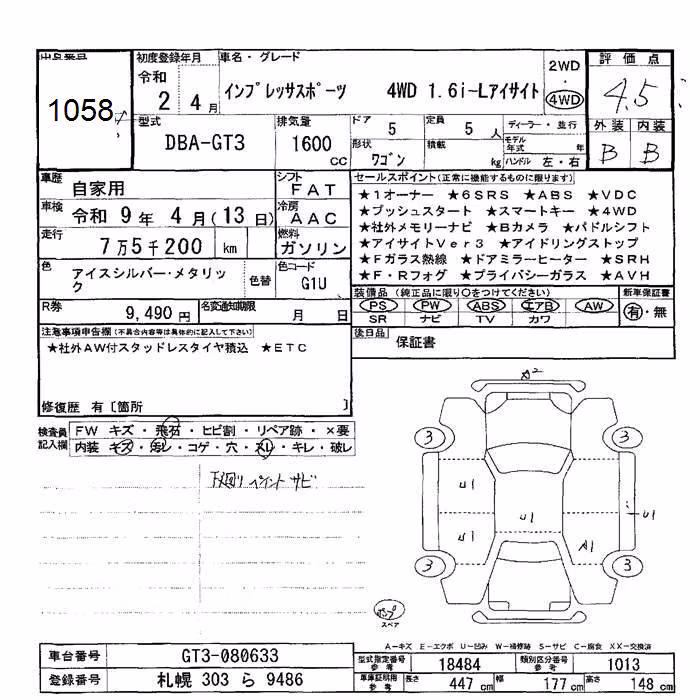 出品番号
1058
初度登録年月
令和
2 4月
車名・グレード
インプレッサスポーツ 4WD 1.6i-Lアイサイト
2WD
・
4WD
評価点
4.5
外装 内装
B B
型式
DBA-GT3
排気量
1600
cc
ドア
5
定員
5 人
形状
ワゴン
積載
kg
ディーラー・並行
モデル年式 年
ハンドル 左・右
車歴
自家用
シフト
FAT
車検
令和 9年 4月(13日)
冷房
AAC
走行
7万5千200 km
燃料
ガソリン
色
アイスシルバー・メタリック
色替
色コード
G1U
R券
9,490円
名変通知期限
月 日
セールスポイント(正常に機能するものに限ります)
★1オーナー ★6SRS ★ABS ★VDC
★プッシュスタート ★スマートキー ★4WD
★社外メモリーナビ ★Bカメラ ★パドルシフト
★アイサイトVer3 ★アイドリングストップ
★Fガラス熱線 ★ドアミラーヒーター ★SRH
★F・Rフォグ ★プライバシーガラス ★AVH
装備品(純正品に限り○をつけてください)
PS PW ABS エアB AW
SR ナビ TV カワ
新車保証書
有・無
後日品
保証書
注意事項申告欄(不具合内容等は具体的に記入して下さい)
★社外AW付スタッドレスタイヤ積込 ★ETC
修復歴 有〔箇所 〕
検査員記入欄
FW キズ・飛石・ヒビ割・リペア跡・×要
内装 キズ・汚レ・コゲ・穴・スレ・キレ・破レ
下廻り ペイント サビ
A2
3 3
U1
U1
U1
U1
A1
3 3
スペア
A-キズ E-エクボ U-凹み W-補修跡 S-サビ C-腐食 XX-交換済
車台番号
GT3-080633
登録番号
札幌 303 ら 9486
型式指定番号
参考
18484
類別区分番号
参考
1013
車庫証明用
参考
長さ 447cm 幅 177cm 高さ 148cm